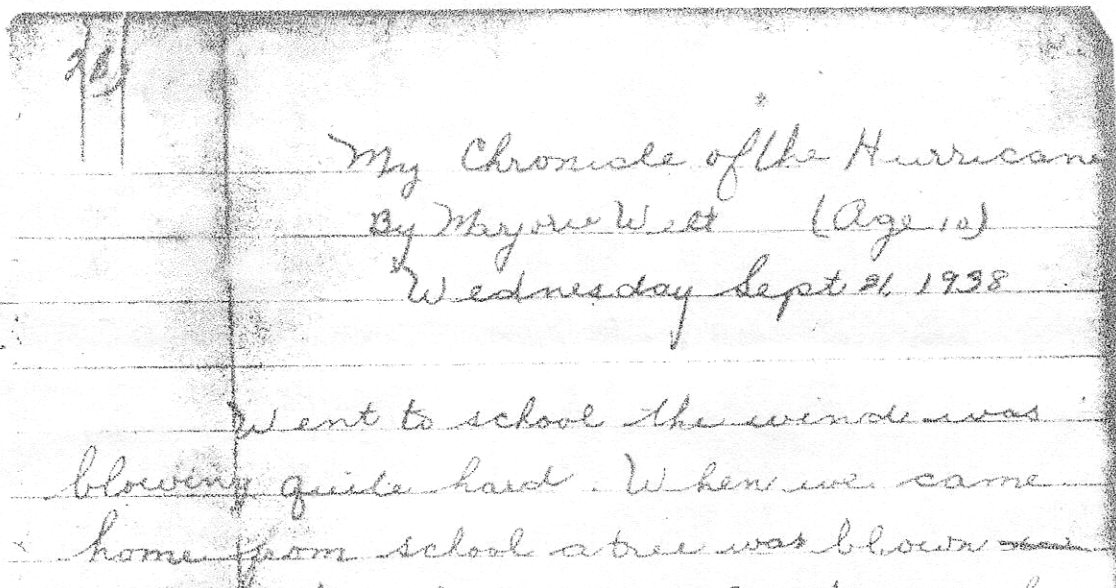 My Chronicle of the Hurricane
By Marjorie Witt (Age 10)
Wednesday Sept 21, 1938
Went to school the wind was
blowing quite hard. When we came
home from school a tree was blown